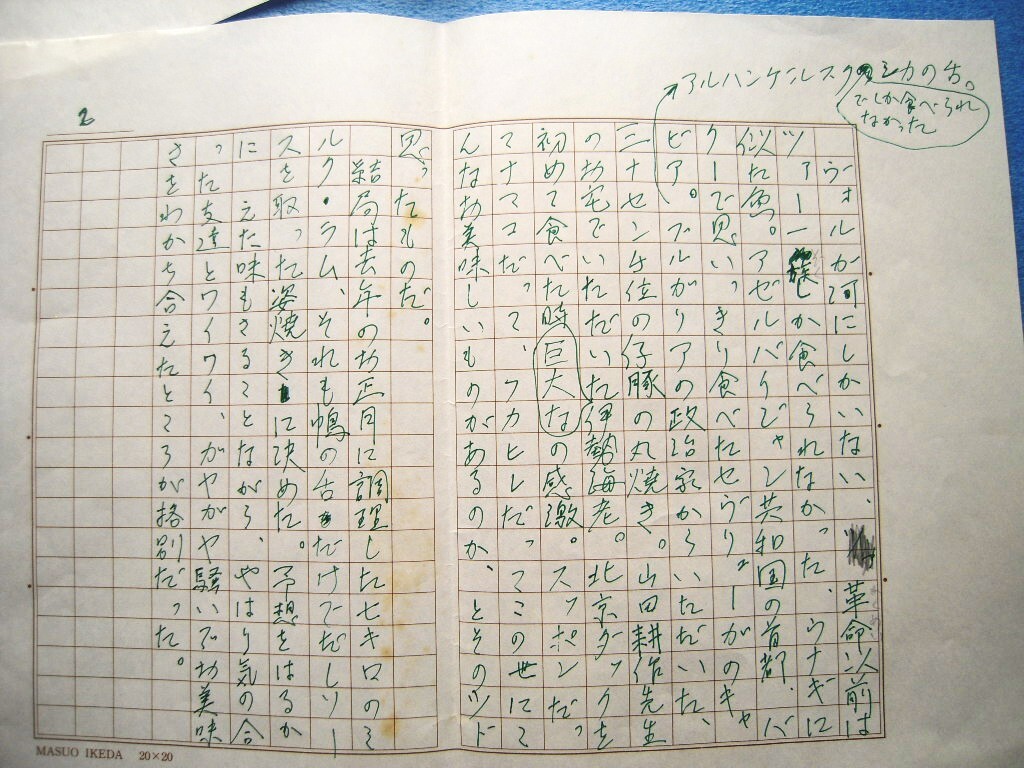 アルハンゲルスクのシカの舌。
でしか食べられ
なかった
2
ヴォルガ河にしかいない、革命以前は
ツアー一族しか食べられなかった、ウナギに
似た魚。アゼルバイジャン共和国の首都、バ
クーで思いっきり食べたセヴリューガのキャ
ビア。ブルガリアの政治家からいただいた、
三十センチ位の仔豚の丸焼き。山田耕作先生
のお宅でいただいた伊勢海老。北京ダックを
初めて食べた時巨大なの感激。スッポンだっ
てナマコだって、フカヒレだってこの世にこ
んなお美味しいものがあるのか、とそのツド
思ったものだ。
結局は去年のお正月に調理した七キロのミ
ルク・ラム、それものの舌だけでだしソー
スを取った姿焼きに決めた。予想をはるか
にこえた味もさることながら、やはり気の合
った友達とワイワイ、ガヤガヤ騒いでお美味
さをわかち合えたところが格別だった。
MASUO IKEDA 20×20